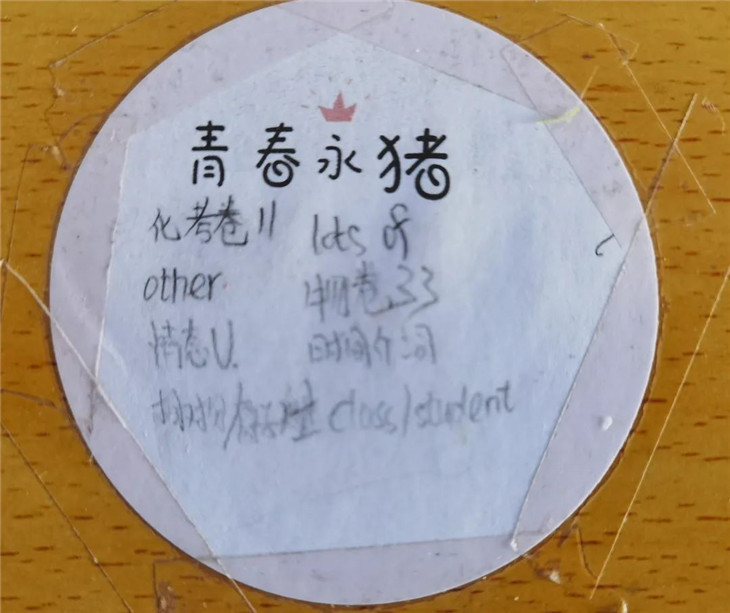 青春永猪
化考卷11 lots of
other 中期卷33
情态V. 时间介词
class/student